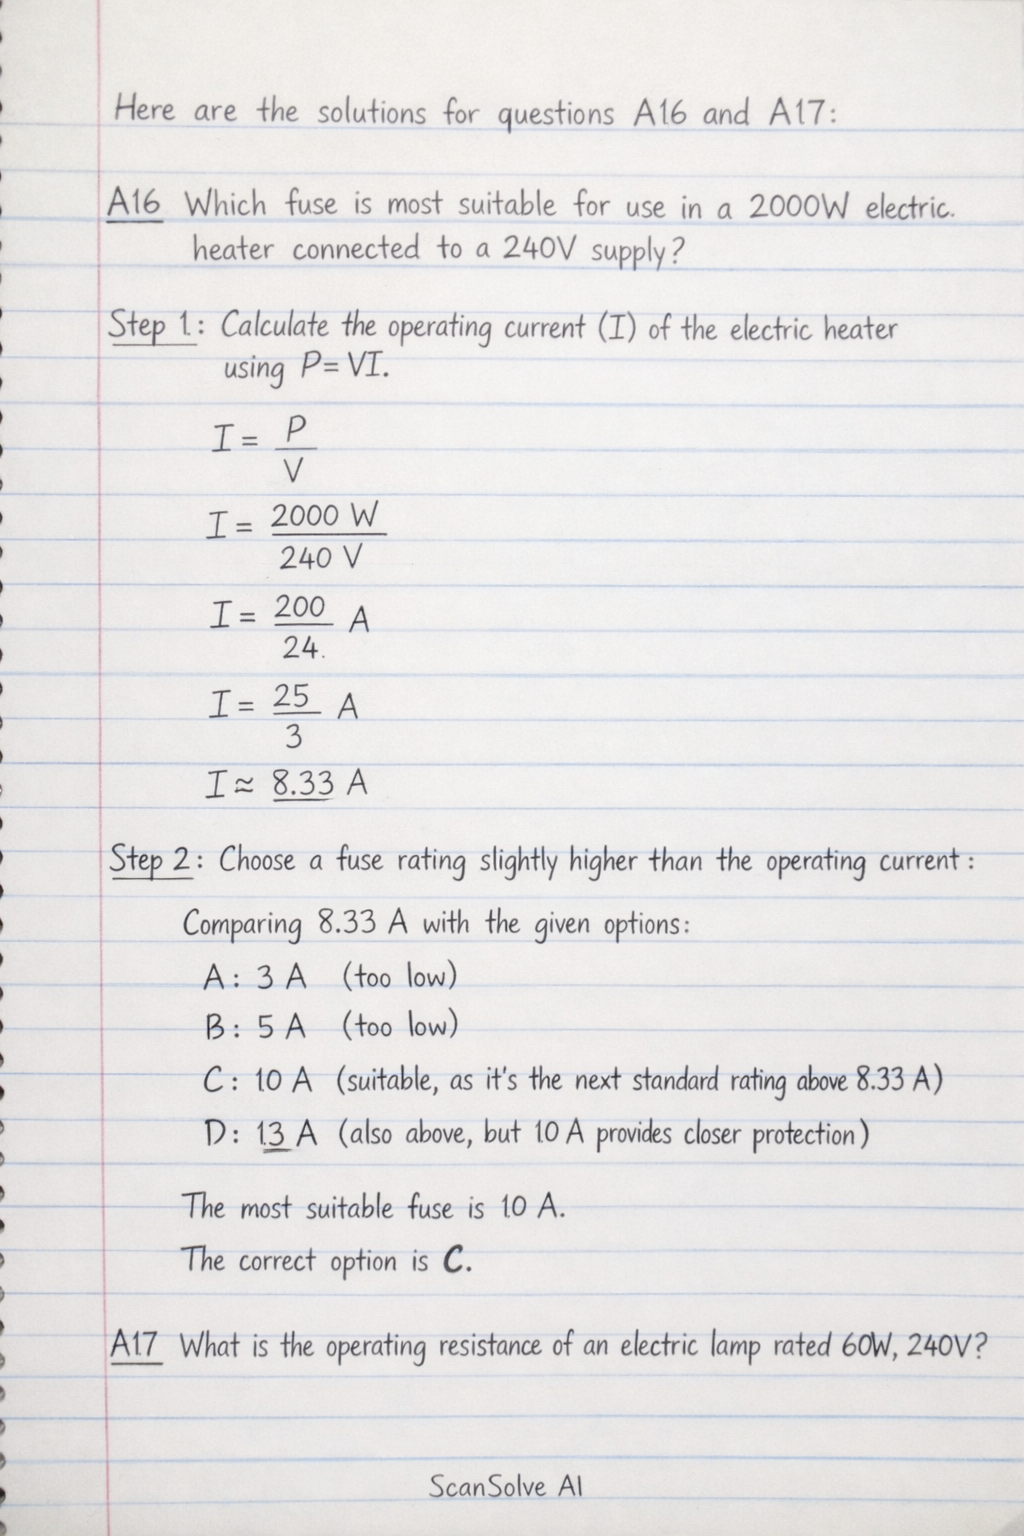 Here are the solutions for questions A16 and A17:
A16 Which fuse is most suitable for use in a 2000W electric.
heater connected to a 240V supply?
Step 1: Calculate the operating current (I) of the electric heater
using P= VI.
I = P
V
I = 2000 W
240 V
I = 200 A
24.
I = 25 A
3
I ≈ 8.33 A
Step 2: Choose a fuse rating slightly higher than the operating current:
Comparing 8.33 A with the given options:
A: 3 A (too low)
B: 5 A (too low)
C: 10 A (suitable, as it's the next standard rating above 8.33 A)
D: 13 A (also above, but 10 A provides closer protection)
The most suitable fuse is 10 A.
The correct option is C.
A17 What is the operating resistance of an electric lamp rated 60W, 240V?
ScanSolve AI